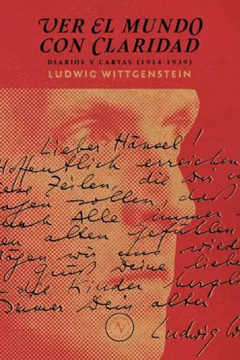 VER EL MUNDO
CON CLARIDAD
DIARIOS Y CARTAS (1914-1939)
LUDWIG WITTGENSTEIN
Lieber Hänsel!
Hoffentlich erreichen
diese Zeilen, die Dir
sagen sollen, daß
alle immer
alten Gefühlen
wir uns wieder
Gruß Deine liebe
die Kinder
immer Dein alter
Ludwig W